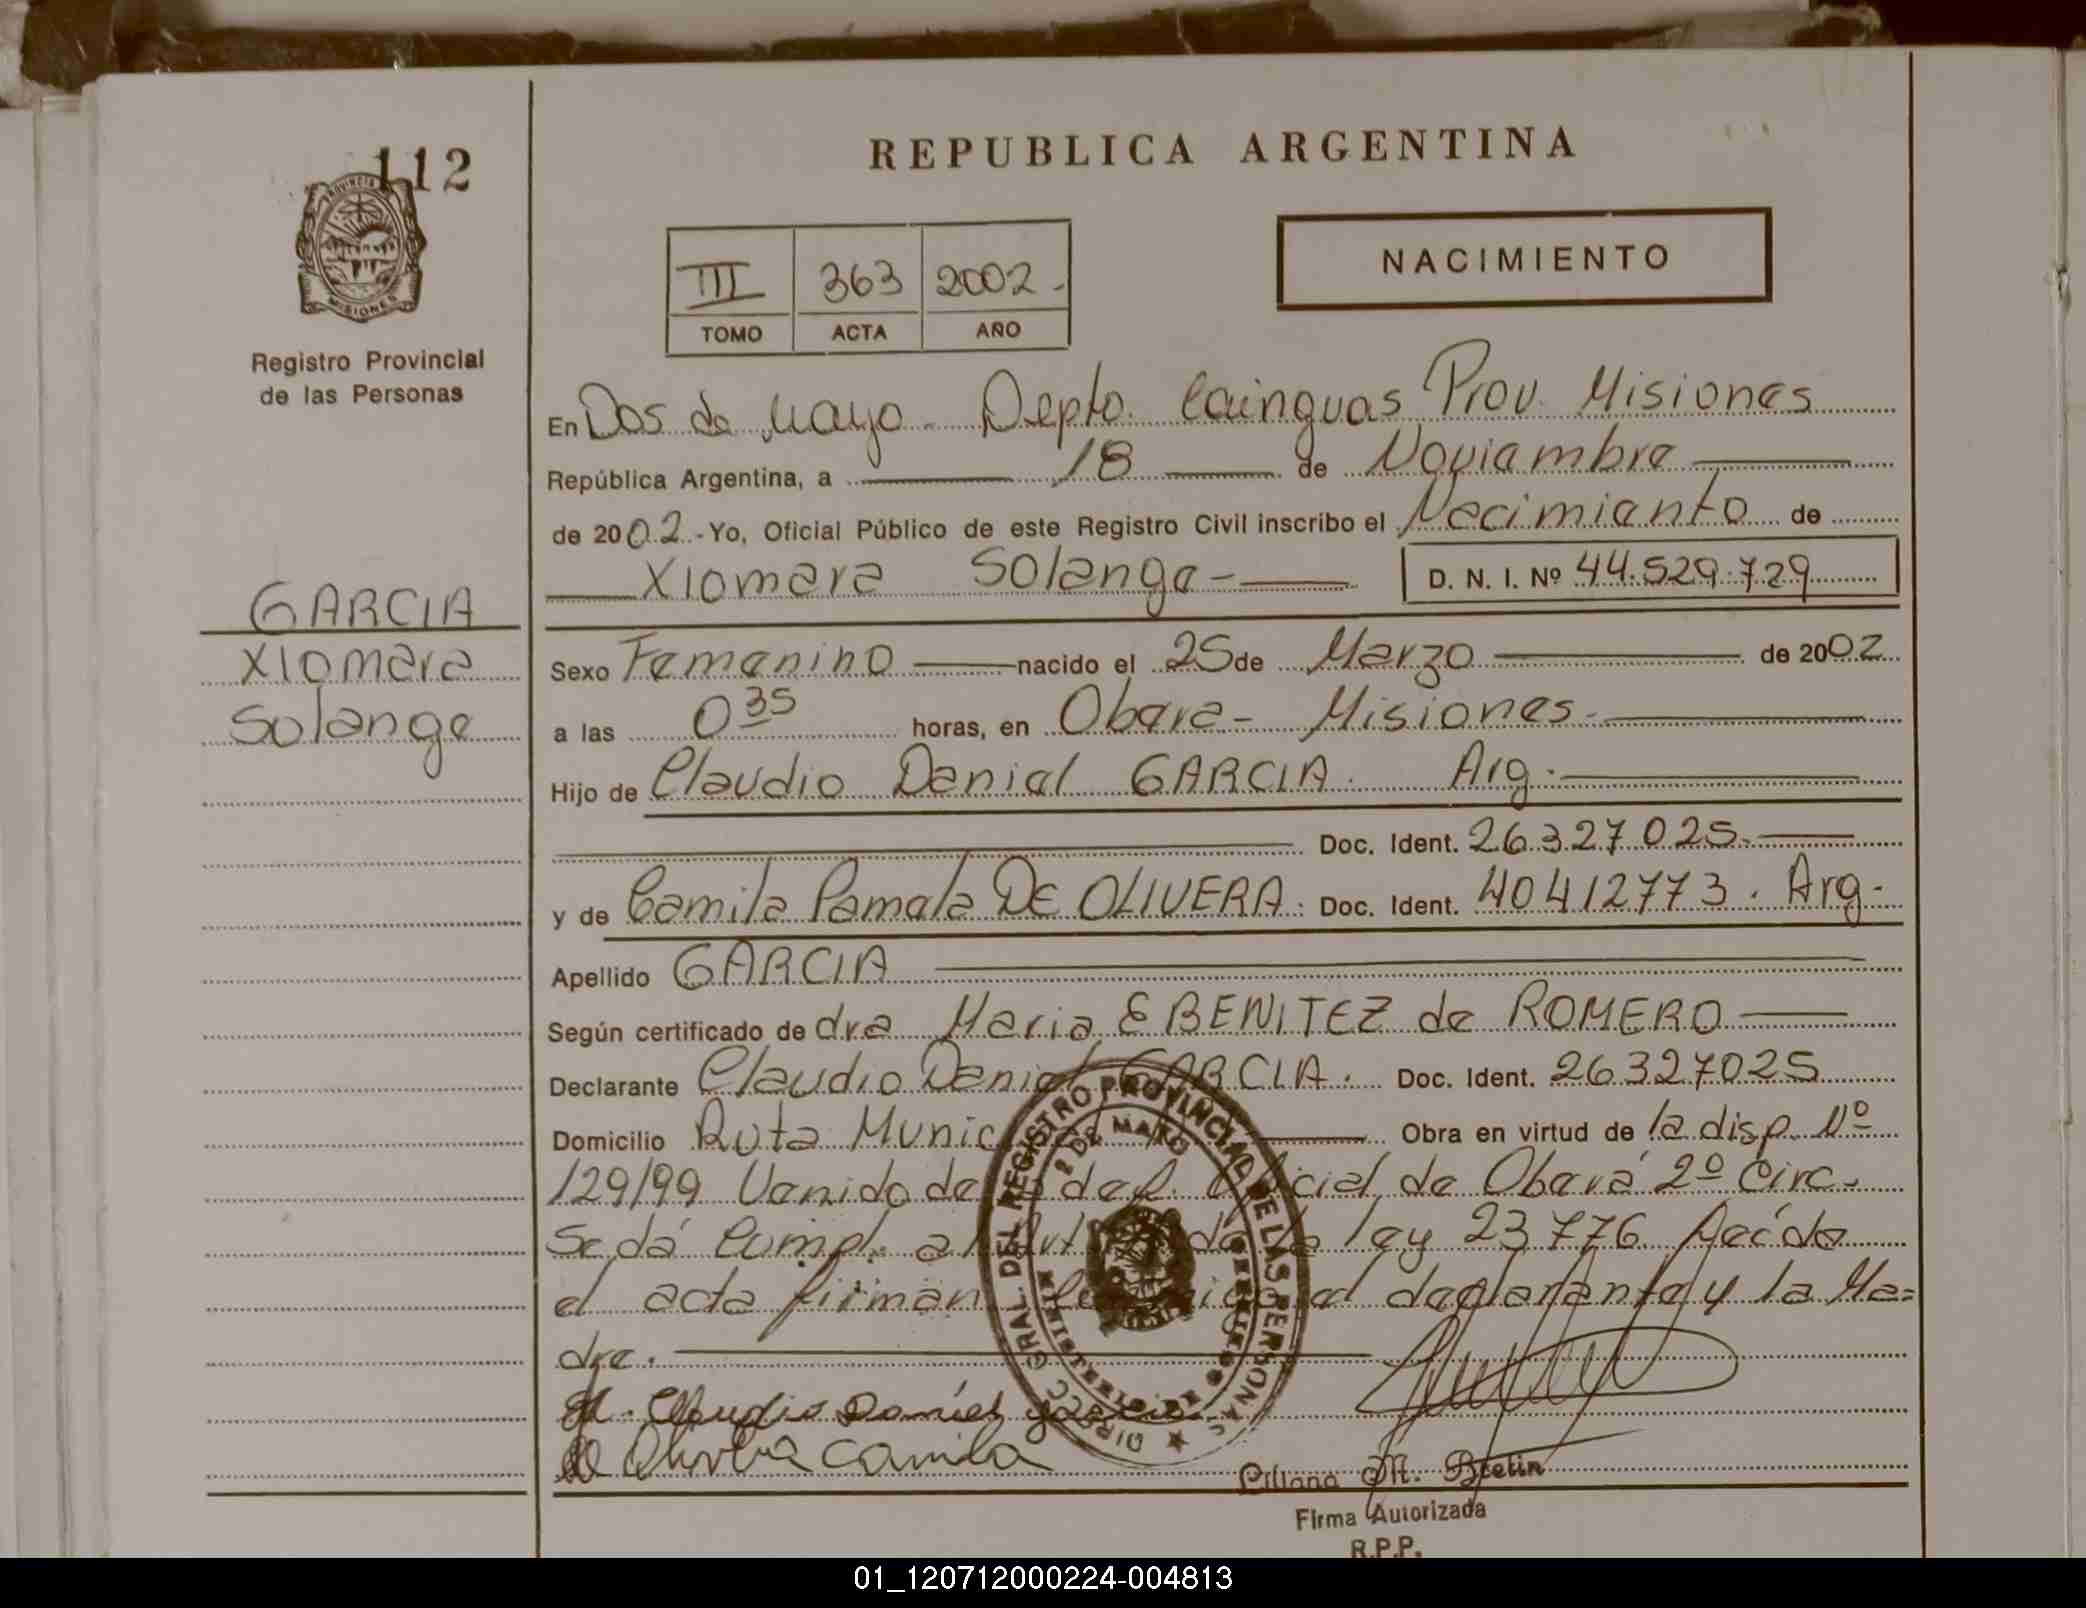 112
PROVINCIA
MISIONES
Registro Provincial
de las Personas
REPUBLICA ARGENTINA
III 363 2002-
TOMO ACTA AÑO
NACIMIENTO
En Dos de Mayo - Depto. Cainguas Prov. Misiones
República Argentina, a 18 de Noviembre
de 2002 - Yo, Oficial Público de este Registro Civil inscribo el Nacimiento de
Xiomara Solange - D. N. I. Nº 44.529.729
GARCIA
Xiomara
Solange
Sexo Femenino nacido el 25 de Marzo de 2002
a las 0 35 horas, en Obera - Misiones -
Hijo de Claudio Daniel GARCIA. Arg.
Doc. Ident. 26327025.
y de Camila Pamela DE OLIVERA. Doc. Ident. 40412773. Arg.
Apellido GARCIA
Según certificado de dra Maria E BENITEZ de ROMERO
Declarante Claudio Daniel GARCIA. Doc. Ident. 26327025
Domicilio Ruta Obra en virtud de la disp. Nº
129/99 Venido de la del. Oficial de Oberá 2º Circ.
Se dá Cumpl. de la ley 23776 Leída
el acta firman el declarante y la Ma=
dre.
Claudio Daniel Garcia
De Olivera Camila
DIRECC. GRAL. DEL REGISTRO PROVINCIAL DE LAS PERSONAS
2 DE MAYO
MISIONES
Liliana M.
Firma Autorizada
R.P.P.
01_120712000224-004813